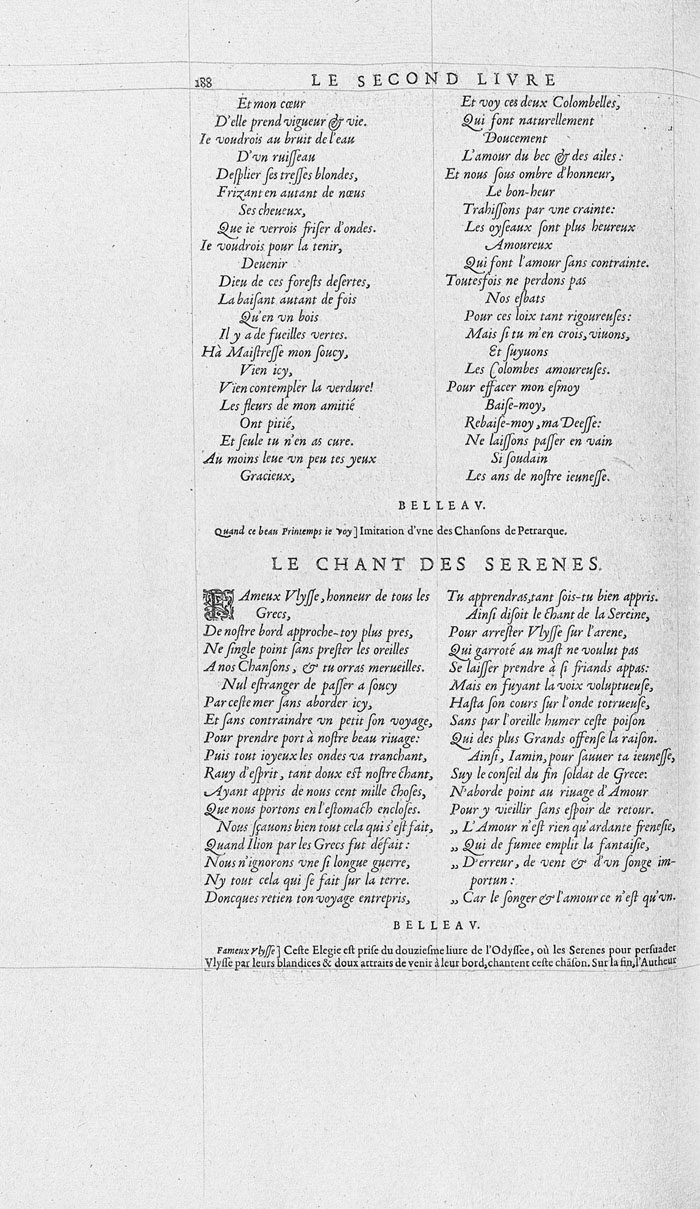 188 LE SECOND LIVRE
Et mon cœur
D'elle prend vigueur & vie.
Ie voudrois au bruit de l'eau
D'vn ruiſſeau
Deſplier ſes treſſes blondes,
Frizant en autant de nœus
Ses cheueux,
Que ie verrois friſer d'ondes.
Ie voudrois pour la tenir,
Deuenir
Dieu de ces foreſts deſertes,
La baiſant autant de fois
Qu'en vn bois
Il y a de fueilles vertes.
Hà Maiſtreſſe mon ſoucy,
Vien icy,
Vien contempler la verdure!
Les fleurs de mon amitié
Ont pitié,
Et ſeule tu n'en as cure.
Au moins leue vn peu tes yeux
Gracieux,
Et voy ces deux Colombelles,
Qui font naturellement
Doucement
L'amour du bec & des ailes:
Et nous ſous ombre d'honneur,
Le bon-heur
Trahiſſons par vne crainte:
Les oyſeaux ſont plus heureux
Amoureux
Qui font l'amour ſans contrainte.
Toutesfois ne perdons pas
Nos eſbats
Pour ces loix tant rigoureuſes:
Mais ſi tu m'en crois, viuons,
Et ſuyuons
Les Colombes amoureuſes.
Pour effacer mon eſmoy
Baiſe-moy,
Rebaiſe-moy, ma Deeſſe:
Ne laiſſons paſſer en vain
Si ſoudain
Les ans de noſtre ieuneſſe.
BELLEAV.
Quand ce beau Printemps ie voy] Imitation d'vne des Chanſons de Petrarque.
LE CHANT DES SERENES.
FAmeux Vlyſſe, honneur de tous les
Grecs,
De noſtre bord approche-toy plus pres,
Ne ſingle point ſans preſter les oreilles
A nos Chanſons, & tu orras merueilles.
Nul eſtranger de paſſer a ſoucy
Par ceſte mer ſans aborder icy,
Et ſans contraindre vn petit ſon voyage,
Pour prendre port à noſtre beau riuage:
Puis tout ioyeux les ondes va tranchant,
Rauy d'eſprit, tant doux eſt noſtre chant,
Ayant appris de nous cent mille choſes,
Que nous portons en l'eſtomach encloſes.
Nous ſçauons bien tout cela qui s'eſt fait,
Quand Ilion par les Grecs fut défait:
Nous n'ignorons vne ſi longue guerre,
Ny tout cela qui ſe fait ſur la terre.
Doncques retien ton voyage entrepris,
Tu apprendras, tant ſois-tu bien appris.
Ainſi diſoit le chant de la Sereine,
Pour arreſter Vlyſſe ſur l'arene,
Qui garroté au maſt ne voulut pas
Se laiſſer prendre à ſi friands appas:
Mais en fuyant la voix voluptueuſe,
Haſta ſon cours ſur l'onde tortueuſe,
Sans par l'oreille humer ceſte poiſon
Qui des plus Grands offenſe la raiſon.
Ainſi, Iamin, pour ſauuer ta ieuneſſe,
Suy le conſeil du fin ſoldat de Grece:
N'aborde point au riuage d'Amour
Pour y vieillir ſans eſpoir de retour.
„ L'Amour n'eſt rien qu'ardante freneſie,
„ Qui de fumee emplit la fantaiſie,
„ D'erreur, de vent & d'vn ſonge im-
portun:
„ Car le ſonger & l'amour ce n'eſt qu'vn.
BELLEAV.
Fameux Vlyſſe] Ceſte Elegie eſt priſe du douzieſme liure de l'Odyſſee, où les Serenes pour perſuader
Vlyſſe par leurs blandices & doux attraits de venir à leur bord, chantent ceſte chãſon. Sur la fin, l'Autheur